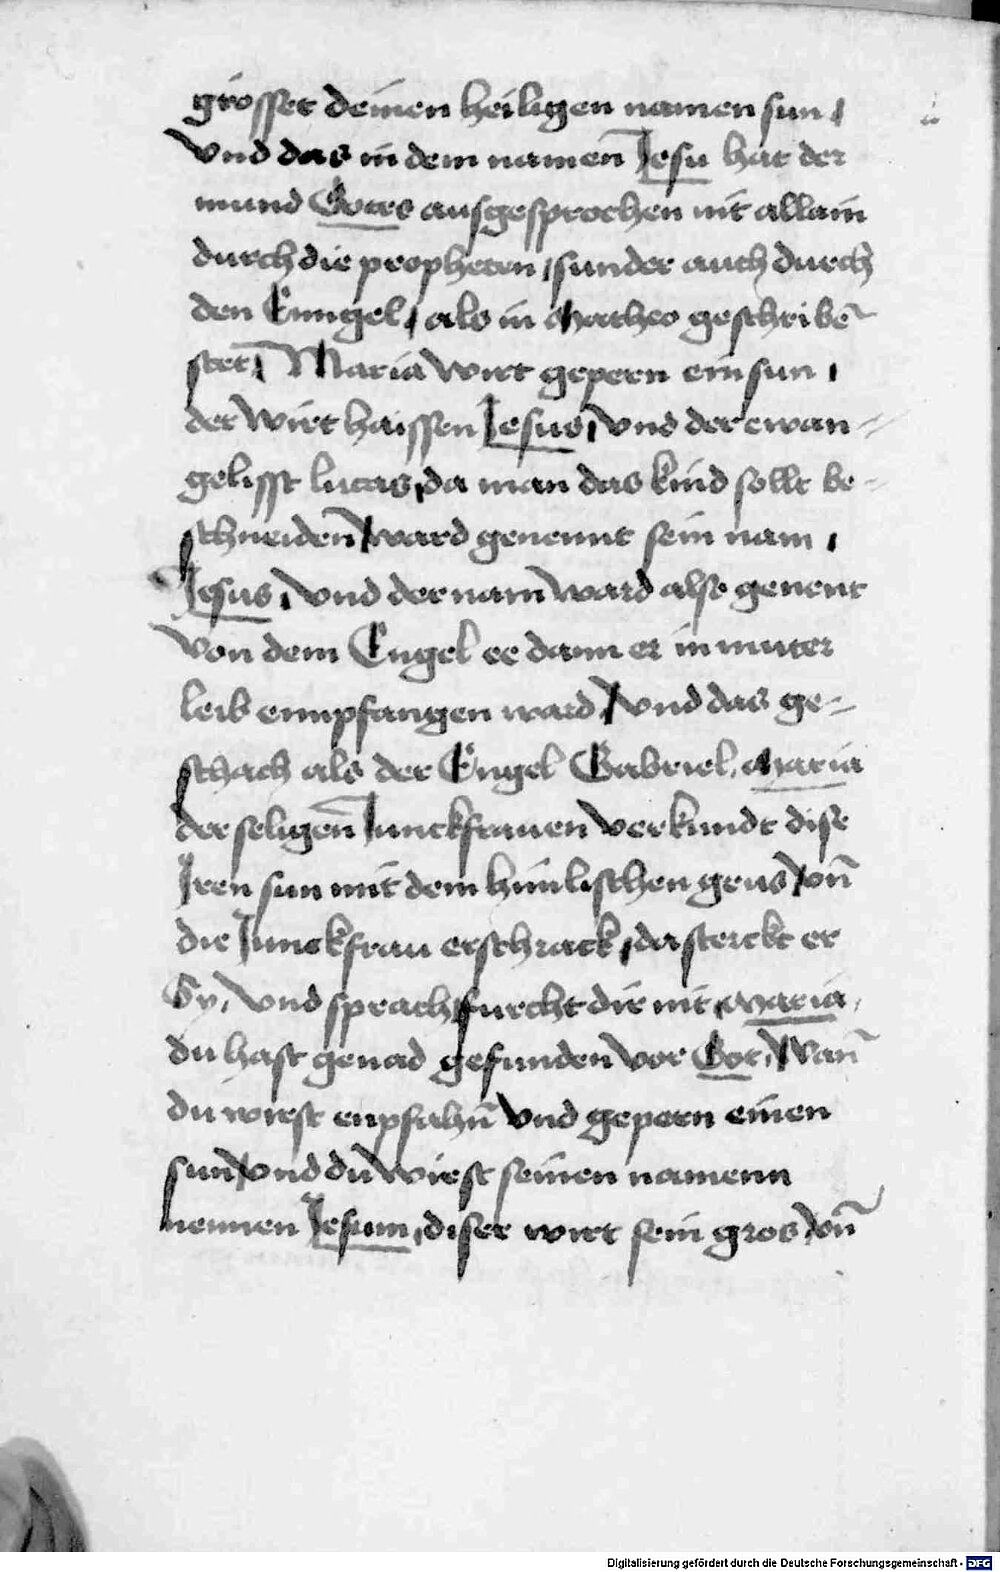 grosset deinen heiligen namen sun /
vnd das in dem namen Jesu hat der
mund Gotes ausgesprochen nit allain
durch die propheten / sunder auch durch
den Enngel / als in Matheo geschribē
stet / Maria wirt gepern ein sun /
der wirt haissen Jesus / vnd der ewan-
gelisst lucas / da man das kind sollt be-
schneiden / ward genennt sein nam /
Jesus / vnd der nam ward also genent
von dem Engel ee dann er in muter
leib emnpfangen ward / vnd das ge-
schach als der Engel Gabriel / Maria
der seligen Junckfrauen verkundt dise
Jren sun mit dem himlischen grus / vn̄
die Junckfrau erschrack / da sterckt er
Sy / vnd sprach / furcht dir nit / Maria /
du hast genad gefunden vor Got / Wan̄
du wirst enpfahn̄ vnd gepern einen
sun / vnd du wirst seinen namenn
nennen Jesum / diser wirt sein gros / vn̄
Digitalisierung gefördert durch die Deutsche Forschungsgemeinschaft - DFG